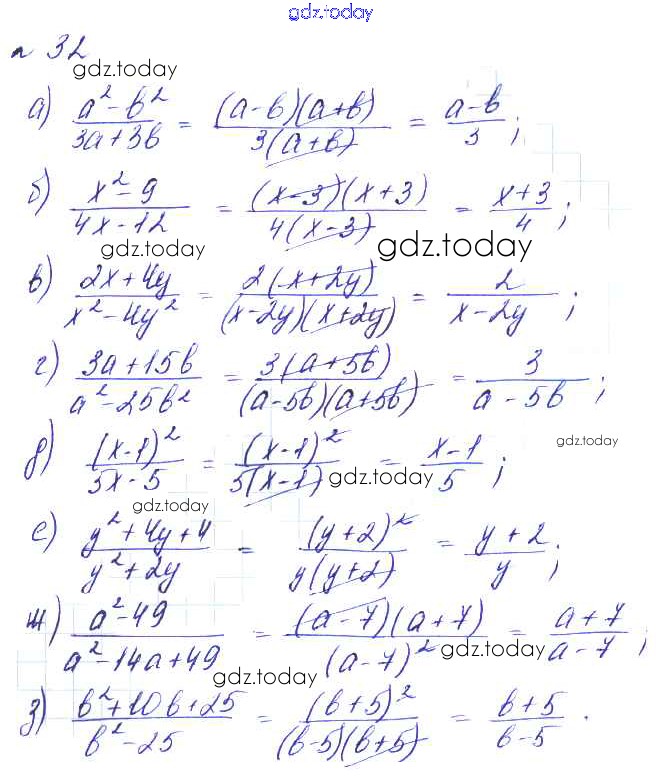 gdz.today
№ 32
gdz.today
а) (a² - b²)/(3a + 3b) = ((a - b)(a + b))/(3(a + b)) = (a - b)/3 ;
б) (x² - 9)/(4x - 12) = ((x - 3)(x + 3))/(4(x - 3)) = (x + 3)/4 ;
gdz.today gdz.today
в) (2x + 4y)/(x² - 4y²) = (2(x + 2y))/((x - 2y)(x + 2y)) = 2/(x - 2y) ;
г) (3a + 15b)/(a² - 25b²) = (3(a + 5b))/((a - 5b)(a + 5b)) = 3/(a - 5b) ;
gdz.today
д) (x - 1)²/(5x - 5) = (x - 1)²/(5(x - 1)) = (x - 1)/5 ;
gdz.today
gdz.today
е) (y² + 4y + 4)/(y² + 2y) = (y + 2)²/(y(y + 2)) = (y + 2)/y ;
ж) (a² - 49)/(a² - 14a + 49) = ((a - 7)(a + 7))/(a - 7)² = (a + 7)/(a - 7) ;
gdz.today
gdz.today
з) (b² + 10b + 25)/(b² - 25) = (b + 5)²/((b - 5)(b + 5)) = (b + 5)/(b - 5) .